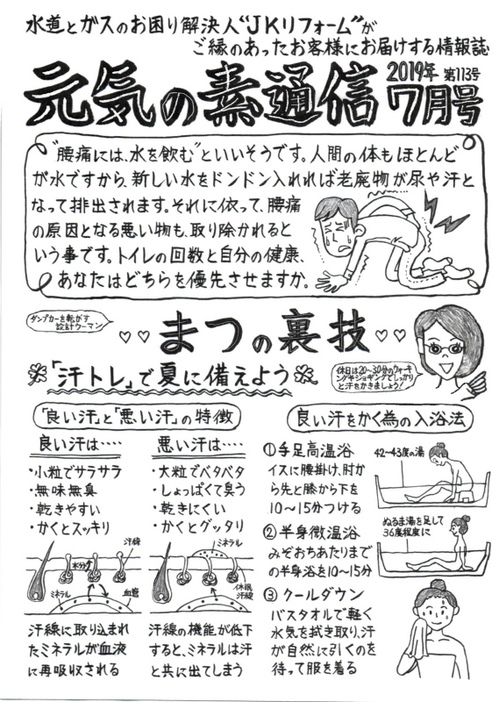 水道とガスのお困り解決人“JKリフォーム”が
ご縁のあったお客様にお届けする情報誌
元気の素通信
2019年 第113号
7月号
“腰痛には、水を飲む”といいそうです。人間の体もほとんど
が水ですから、新しい水をドンドン入れれば老廃物が尿や汗と
なって排出されます。それに依って、腰痛
の原因となる悪い物も、取り除かれると
いう事です。トイレの回数と自分の健康、
あなたはどちらを優先させますか。
ダンプカーを転がす
設計ウーマン
まつの裏技
「汗トレ」で夏に備えよう
休日は20〜30分のウォーキ
ングやジョギングでしっかり
と汗をかきましょう!
「良い汗」と「悪い汗」の特徴
良い汗は‥‥
・小粒でサラサラ
・無味無臭
・乾きやすい
・かくとスッキリ
悪い汗は‥‥
・大粒でベタベタ
・しょっぱくて臭う
・乾きにくい
・かくとグッタリ
汗腺
水分
ミネラル
血管
汗腺に取り込まれ
たミネラルが血液
に再吸収される
ミネラル
休眠
汗腺
汗腺の機能が低下
すると、ミネラルは汗
と共に出てしまう
良い汗をかく為の入浴法
①手足高温浴
イスに腰掛け、肘か
ら先と膝から下を
10〜15分つける
42〜43度の湯
②半身微温浴
みぞおちあたりまで
の半身浴を10〜15分
ぬるま湯を足して
36度程度に
③クールダウン
バスタオルで軽く
水気を拭き取り、汗
が自然に引くのを
待って服を着る